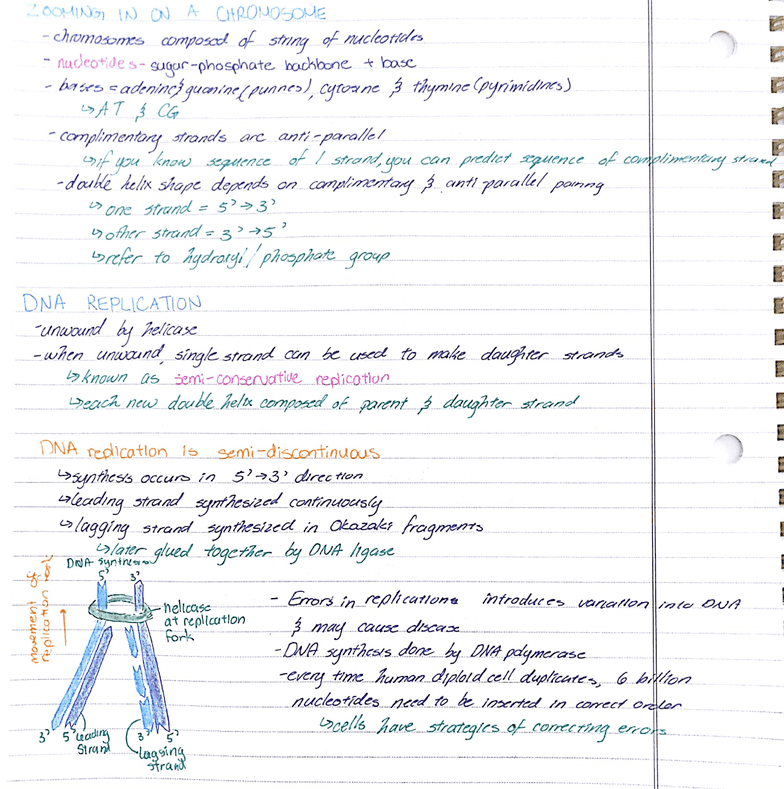 ZOOMING IN ON A CHROMOSOME
- chromosomes composed of string of nucleotides
- nucleotides - sugar-phosphate backbone + base
- bases = adenine & guanine (purines), cytosine & thymine (pyrimidines)
↳ AT & CG
- complimentary strands are anti-parallel
↳ if you know sequence of 1 strand, you can predict sequence of complimentary strand
- double helix shape depends on complimentary & anti parallel pairing
↳ one strand = 5' → 3'
↳ other strand = 3' → 5'
↳ refer to hydroxyl / phosphate group
DNA REPLICATION
- unwound by helicase
- when unwound, single strand can be used to make daughter strands
↳ known as semi-conservative replication
↳ each new double helix composed of parent & daughter strand
DNA replication is semi-discontinuous
↳ synthesis occurs in 5' → 3' direction
↳ leading strand synthesized continuously
↳ lagging strand synthesized in Okazaki fragments
↳ later glued together by DNA ligase
DNA synthesis
5' 3'
movement of
replication fork
helicase
at replication
fork
3' 5' leading
strand
3' 5'
Lagging
strand
- Errors in replication introduces variation into DNA
& may cause disease
- DNA synthesis done by DNA polymerase
- every time human diploid cell duplicates, 6 billion
nucleotides need to be inserted in correct order
↳ cells have strategies of correcting errors